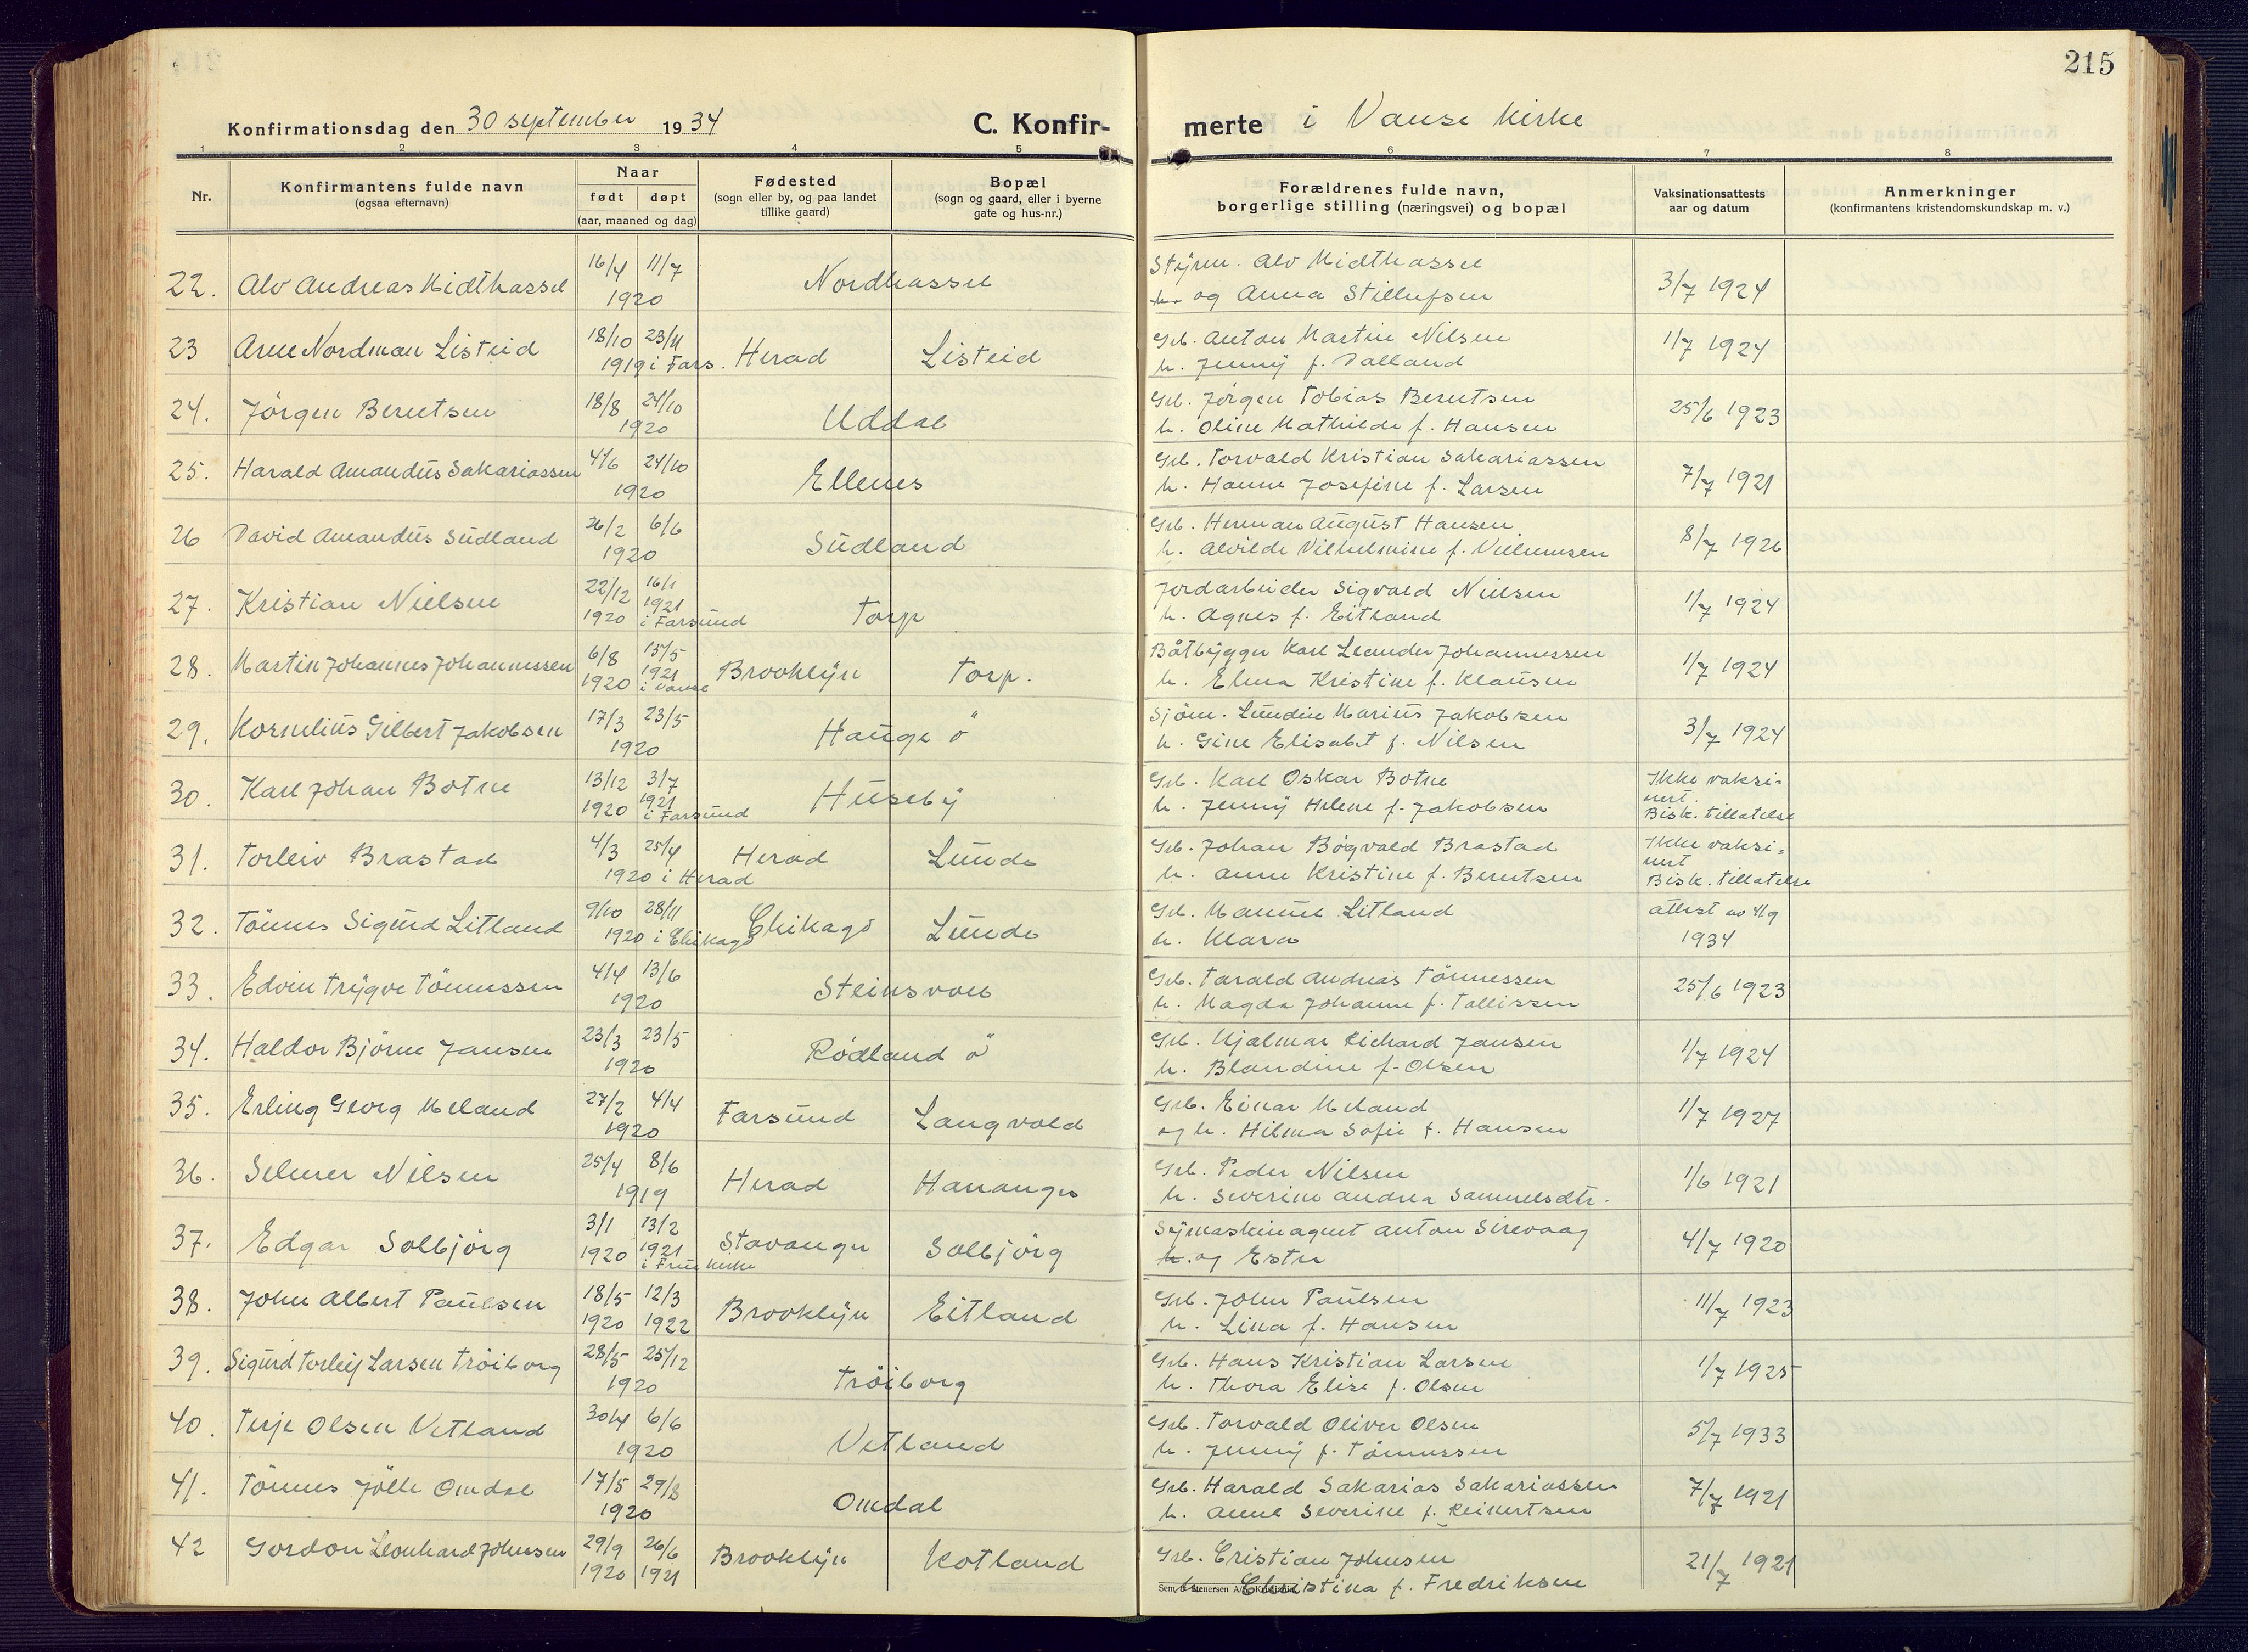 215
Konfirmationsdag den 30 september 1934
C. Konfir-
merte i Vanse kirke
1 2 3 4 5 6 7 8
Nr.
Konfirmantens fulde navn
(ogsaa efternavn)
Naar
født døpt
(aar, maaned og dag)
Fødested
(sogn eller by, og paa landet
tillike gaard)
Bopæl
(sogn og gaard, eller i byerne
gate og hus-nr.)
Forældrenes fulde navn,
borgerlige stilling (næringsvei) og bopæl
Vaksinationsattests
aar og datum
Anmerkninger
(konfirmantens kristendomskundskap m. v.)
22. Alv Andreas Midthassel 16/4 11/7 1920 Nordhassel
Styrm. Alv Midthassel
og Anna Stellufsen
3/7 1924
23 Arne Nordman Listeid 18/10 23/11 1919 i Fars. Herad Listeid
Grb. Anton Martin Nilsen
h. Jenny f. Dalland
1/7 1924
24. Jörgen Berntsen 18/8 24/10 1920 Uddal
Grb. Jörgen Tobias Berntsen
h. Oline Mathilde f. Hansen
25/6 1923
25. Harald Amandus Sakariassen 4/6 24/10 1920 Ellenes
Grb. Torvald Kristian Sakariassen
h. Hanne Josefine f. Larsen
7/7 1921
26 David Amandus Sudland 26/2 6/6 1920 Sudland
Grb. Herman August Hansen
h. Alvilde Vilhelmine f. Villumsen
8/7 1926
27. Kristian Nielsen 22/12 1920 16/1 1921 i Farsund Torp
Jordarbeider Sigvald Nielsen
h. Agnes f. Eitland
1/7 1924
28. Martin Johannes Johannessen 6/8 1920 15/5 1921 i Vanse Brooklyn Torp.
Båtbygger Karl Leander Johannessen
h. Elma Kristine f. Klausen
1/7 1924
29. Kornelius Gilbert Jakobsen 17/3 23/5 1920 Hauge ö
Sjöm. Lundin Marius Jakobsen
h. Gine Elisabet f. Nilsen
3/7 1924
30. Karl Johan Botne 13/12 1920 3/7 1921 i Farsund Huseby
Grb. Karl Oskar Botne
h. Jenny Helene f. Jakobsen
Ikke vaksi-
nert.
Bisk. tillatelse
31. Torleiv Brastad 4/3 25/4 1920 i Herad Herad Lunde
Grb. Johan Bøgvald Brastad
h. Anne Kristine f. Berntsen
Ikke vaksi-
nert
Bisk. tillatelse
32. Tönnes Sigurd Litland 9/10 28/11 1920 i Chikago Chikago Lunde
Grb. Manuel Litland
h. Klara
attest av 4/9
1934
33. Edvin Trygve Tönnessen 4/4 13/6 1920 Steinsvoll
Grb. Tarald Andreas Tönnessen
h. Magda Johanne f. Tallissen
25/6 1923
34. Haldor Björne Jansen 23/3 23/5 1920 Rödland ö
Grb. Hjalmar Richard Jansen
h. Blandine f. Olsen
1/7 1924
35. Erling Georg Meland 27/2 4/4 1920 Farsund Langvold
Grb. Einar Meland
og h. Hilma Sofie f. Hansen
1/7 1927
36. Selmer Nilsen 25/4 8/6 1919 Herad Hananger
Grb. Peder Nilsen
h. Severine Andrea Samuelsdtr.
1/6 1921
37. Edgar Solbjörg 3/1 1920 13/2 1921 i Frue kirke Stavanger Solbjörg
Symaskinagent Anton Sirevaag
h. og Ester
4/7 1920
38. John Albert Paulsen 18/5 1920 12/3 1922 Brooklyn Eitland
Grb. John Paulsen
h. Lina f. Hansen
11/7 1923
39. Sigurd Torleif Larsen Tröiborg 28/5 25/12 1920 Tröiborg
Grb. Hans Kristian Larsen
h. Thora Elise f. Olsen
1/7 1925
40. Terje Olsen Vetland 30/4 6/6 1920 Vetland
Grb. Torvald Oliver Olsen
h. Jenny f. Tönnessen
5/7 1933
41. Tönnes Jölle Omdal 17/5 29/8 1920 Omdal
Grb. Harald Sakarias Sakariassen
h. Anne Severine f. Reinertsen
7/7 1921
42 Gordon Leonhard Johnsen 29/9 1920 26/6 1921 Brooklyn Kotland
Grb. Cristian Johnsen
h. Christina f. Fredriksen
21/7 1921